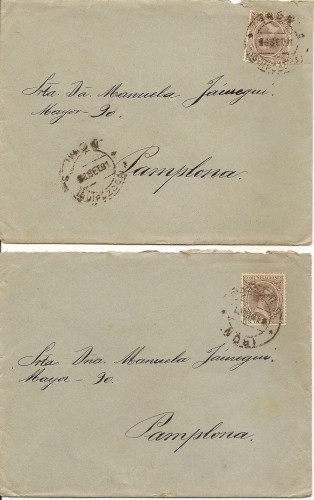 Srta Dª. Manuela Jáuregui.
Mayor-30.
Pamplona.
Srta Dña. Manuela Jáuregui.
Mayor-30.
Pamplona.